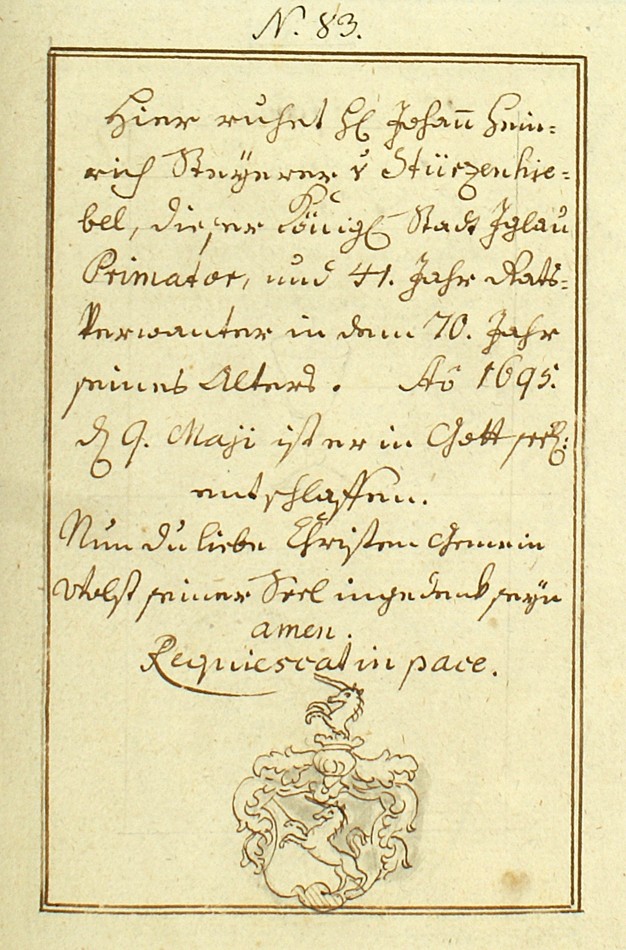 N. 83.
Hier ruhet H. Johan̅ Hein=
rich Steÿerer v Stürzenhie=
bel, dieser Königl Stadt Iglau
Primator, und 41. Jahr Rats=
Verwanter in dem 70. Jahr
seines Alters. Aõ 1695.
d 9. Maji ist er in Gott seel:
entschlaffen.
Nun du liebe Christen Gemein
Wolst seiner Seel ingedenk seÿn
amen.
Requiescat in pace.